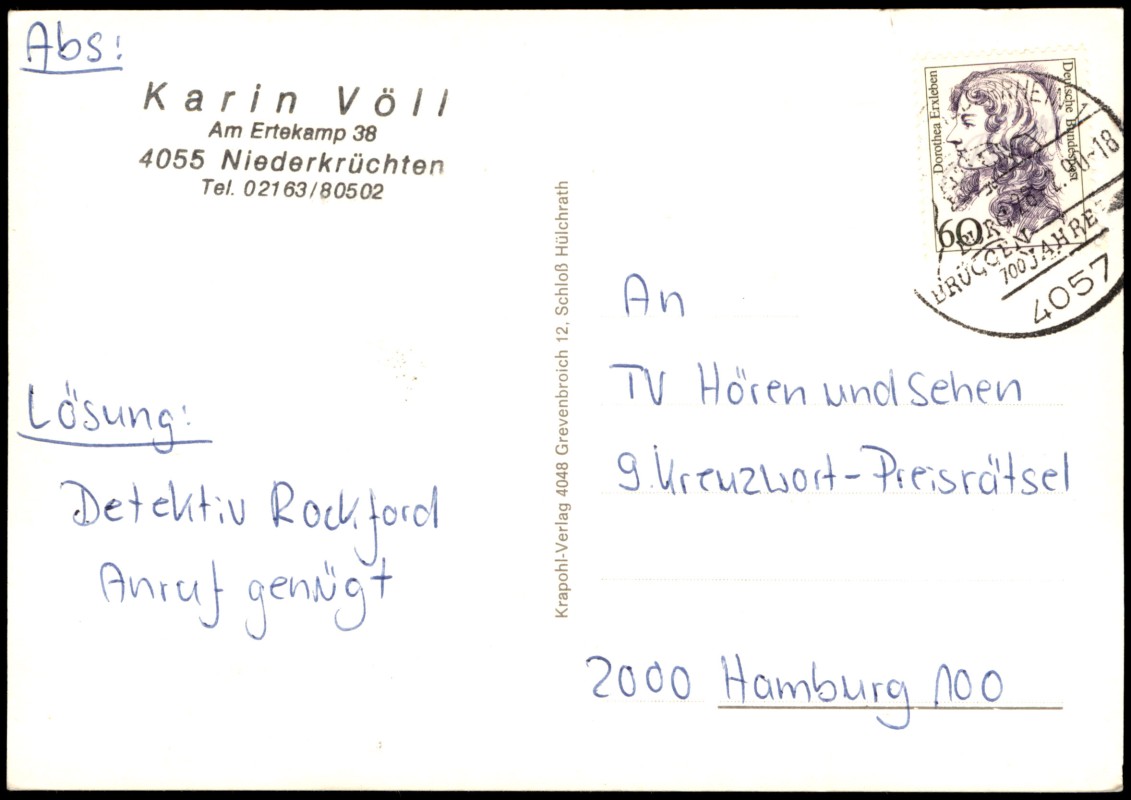 Abs:
Karin Völl
Am Ertekamp 38
4055 Niederkrüchten
Tel. 02163/80502
Lösung:
Detektiv Rockford
Anruf genügt
Krapohl-Verlag 4048 Grevenbroich 12, Schloß Hülchrath
Dorothea Erxleben
Deutsche Bundespost
60
90-18
BRÜGGEN
700 JAHRE
4057
An
TV Hören und Sehen
9. Kreuzwort-Preisrätsel
2000 Hamburg 100